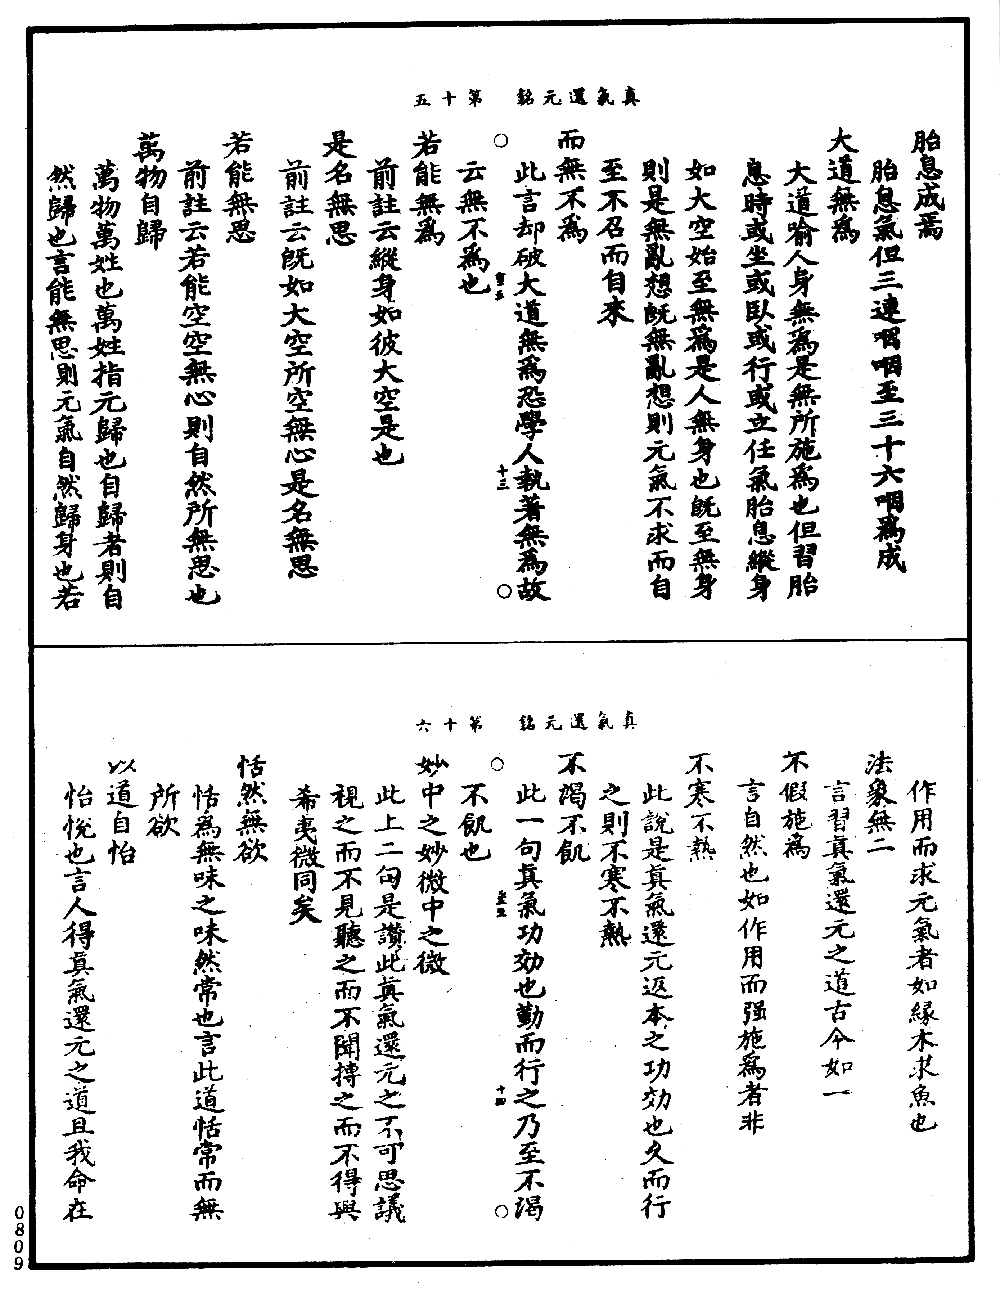 真氣還元銘　第十五
胎息成焉
胎息氣但三連咽咽至三十六咽爲成
大道無爲
大道喻人身無爲是無所施爲也但習胎
息時或坐或臥或行或立任氣胎息縱身
如大空始至無爲是人無身也既至無身
則是無亂想既無亂想則元氣不求而自
至不召而自來
而無不爲
此言却破大道無爲恐學人執著無爲故
十三
○
○
云無不爲也
若能無爲
前註云縱身如彼大空是也
是名無思
前註云既如大空所空無心是名無思
若能無思
前註云若能空空無心則自然所無思也
萬物自歸
萬物萬姓也萬姓指元歸也自歸者則自
然歸也言能無思則元氣自然歸身也若
真氣還元銘　第十六
作用而求元氣者如緣木求魚也
法象無二
言習真氣還元之道古今如一
不假施爲
言自然也如作用而强施爲者非
不寒不熱
此說是真氣還元返本之功効也久而行
之則不寒不熱
不渴不飢
此一句真氣功効也勤而行之乃至不渴
十四
○
○
不飢也
妙中之妙微中之微
此上二句是讚此真氣還元之不可思議
視之而不見聽之而不聞摶之而不得與
希夷微同矣
恬然無欲
恬爲無味之味然常也言此道恬常而無
所欲
以道自怡
怡悅也言人得真氣還元之道且我命在
0809